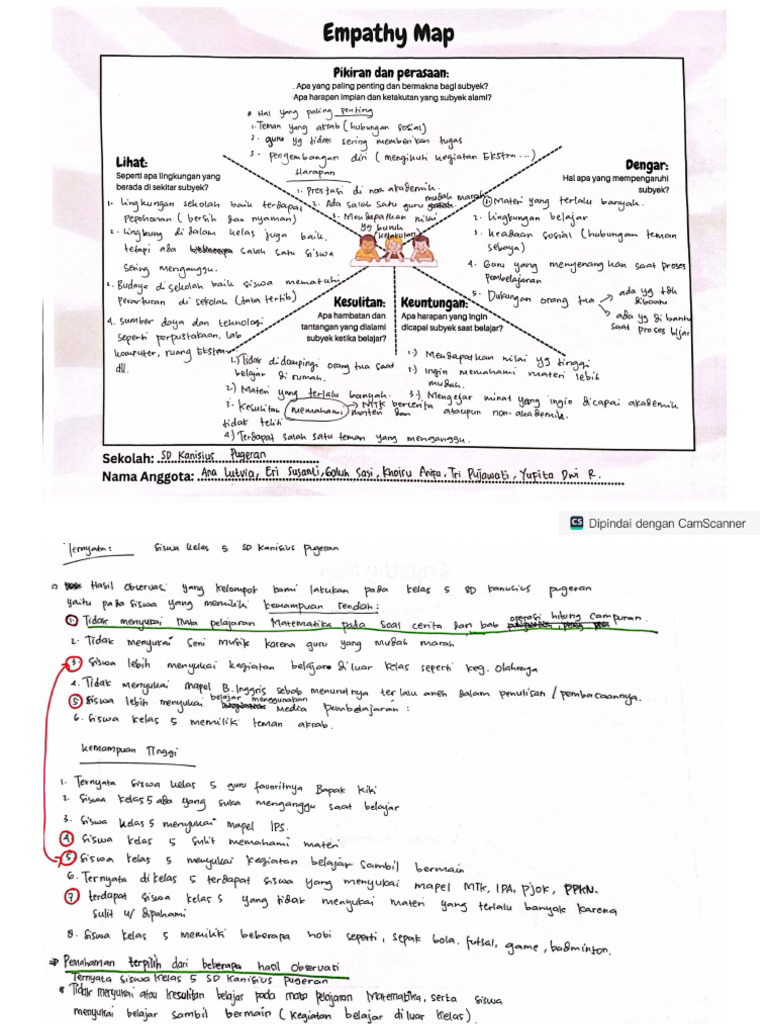 Empathy Map
Pikiran dan perasaan:
Apa yang paling penting dan bermakna bagi subyek?
Apa harapan impian dan ketakutan yang subyek alami?
* Hal yang paling penting
1. Teman yang akrab (hubungan sosial)
2. guru yg tidak sering memberikan tugas
3. pengembangan diri (mengikuti kegiatan Ekstra...)
Harapan
1. Prestasi di non-akademik.
2. Ada salah satu guru mudah marah
3. Mendapatkan nilai
yg buruk
(ketakutan)
Lihat:
Seperti apa lingkungan yang
berada di sekitar subyek?
1. lingkungan sekolah baik terdapat
pepohonan (bersih dan nyaman)
2. lingkung di dalam kelas juga baik,
tetapi ada salah satu siswa
sering menganggu.
3. Budaya di sekolah baik siswa mematuhi
peraturan di sekolah (tata tertib)
4. Sumber daya dan teknologi
seperti perpustakaan, lab
komputer, ruang Ekstra
dll.
Dengar:
Hal apa yang mempengaruhi
subyek?
1. Materi yang terlalu banyak.
2. Lingkungan belajar
3. keadaan sosial (hubungan teman
sebaya)
4. Guru yang menyenangkan saat proses
pembelajaran
5. Dukungan orang tua → ada yg tdk
dibantu
→ ada yg di bantu
saat proses bljar
Kesulitan:
Apa hambatan dan
tantangan yang dialami
subyek ketika belajar?
1.) Tidak didampingi orang tua saat
belajar di rumah.
2) Materi yang terlalu banyak.
3. Kesulitan memahami materi dan
→ MTK bercerita
tidak teliti
4) Terdapat salah satu teman yang menganggu.
Keuntungan:
Apa harapan yang ingin
dicapai subyek saat belajar?
1.) Mendapatkan nilai yg tinggi
2.) Ingin memahami materi lebih
mudah.
3.) Mengejar minat yang ingin dicapai akademik
ataupun non-akademik.
Sekolah: SD Kanisius Pugeran
Nama Anggota: Ana Lutvia, Eri Susanti, Galuh Sasi, Khoiru Anisa, Tri Pujawati, Yupita Dwi R.
CS Dipindai dengan CamScanner
Ternyata: Siswa kelas 5 SD Kanisius Pugeran
Hasil Observasi yang kelompok kami lakukan pada kelas 5 SD kanisius pugeran
yaitu pada siswa yang memiliki kemampuan rendah:
1. Tidak menyukai Mata pelajaran Matematika pada soal cerita dan bab operasi hitung campuran.
2. Tidak menyukai Seni musik karena guru yang mudah marah
3. Siswa lebih menyukai kegiatan belajar diluar kelas seperti keg. Olahraga
4. Tidak menyukai mapel B. Inggris sebab menurutnya terlalu aneh dalam penulisan / pembacaannya.
5. Siswa lebih menyukai belajar menggunakan Media pembelajaran:
6. Siswa kelas 5 memiliki teman akrab.
kemampuan Tinggi
1. Ternyata siswa kelas 5 guru favoritnya Bapak Kiki
2. Siswa kelas 5 ada yang suka menganggu saat belajar
3. Siswa kelas 5 menyukai mapel IPS.
4. Siswa kelas 5 sulit memahami materi
5. Siswa kelas 5 menyukai kegiatan belajar sambil bermain
6. Ternyata di kelas 5 terdapat siswa yang menyukai mapel MTK, IPA, Pjok, PPKN.
7. terdapat siswa kelas 5 yang tidak menyukai materi yang terlalu banyak karena
sulit u/ dipahami
8. Siswa kelas 5 memiliki beberapa hobi seperti, sepak bola, futsal, game, badminton.
⇒ Pemahaman terpilih dari beberapa hasil observasi
Ternyata siswa kelas 5 SD Kanisius Pugeran
* Tidak menyukai atau kesulitan belajar pada mata pelajaran Matematika, serta siswa
menyukai belajar sambil bermain (kegiatan belajar diluar kelas).